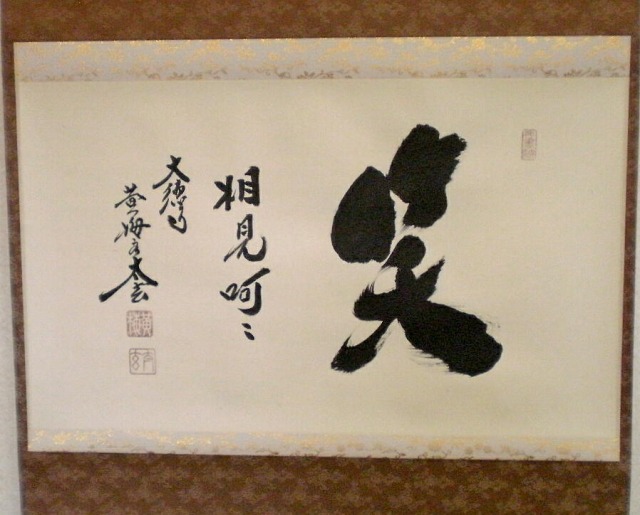 笑
相見呵〻
大徳寺
黄梅主太玄